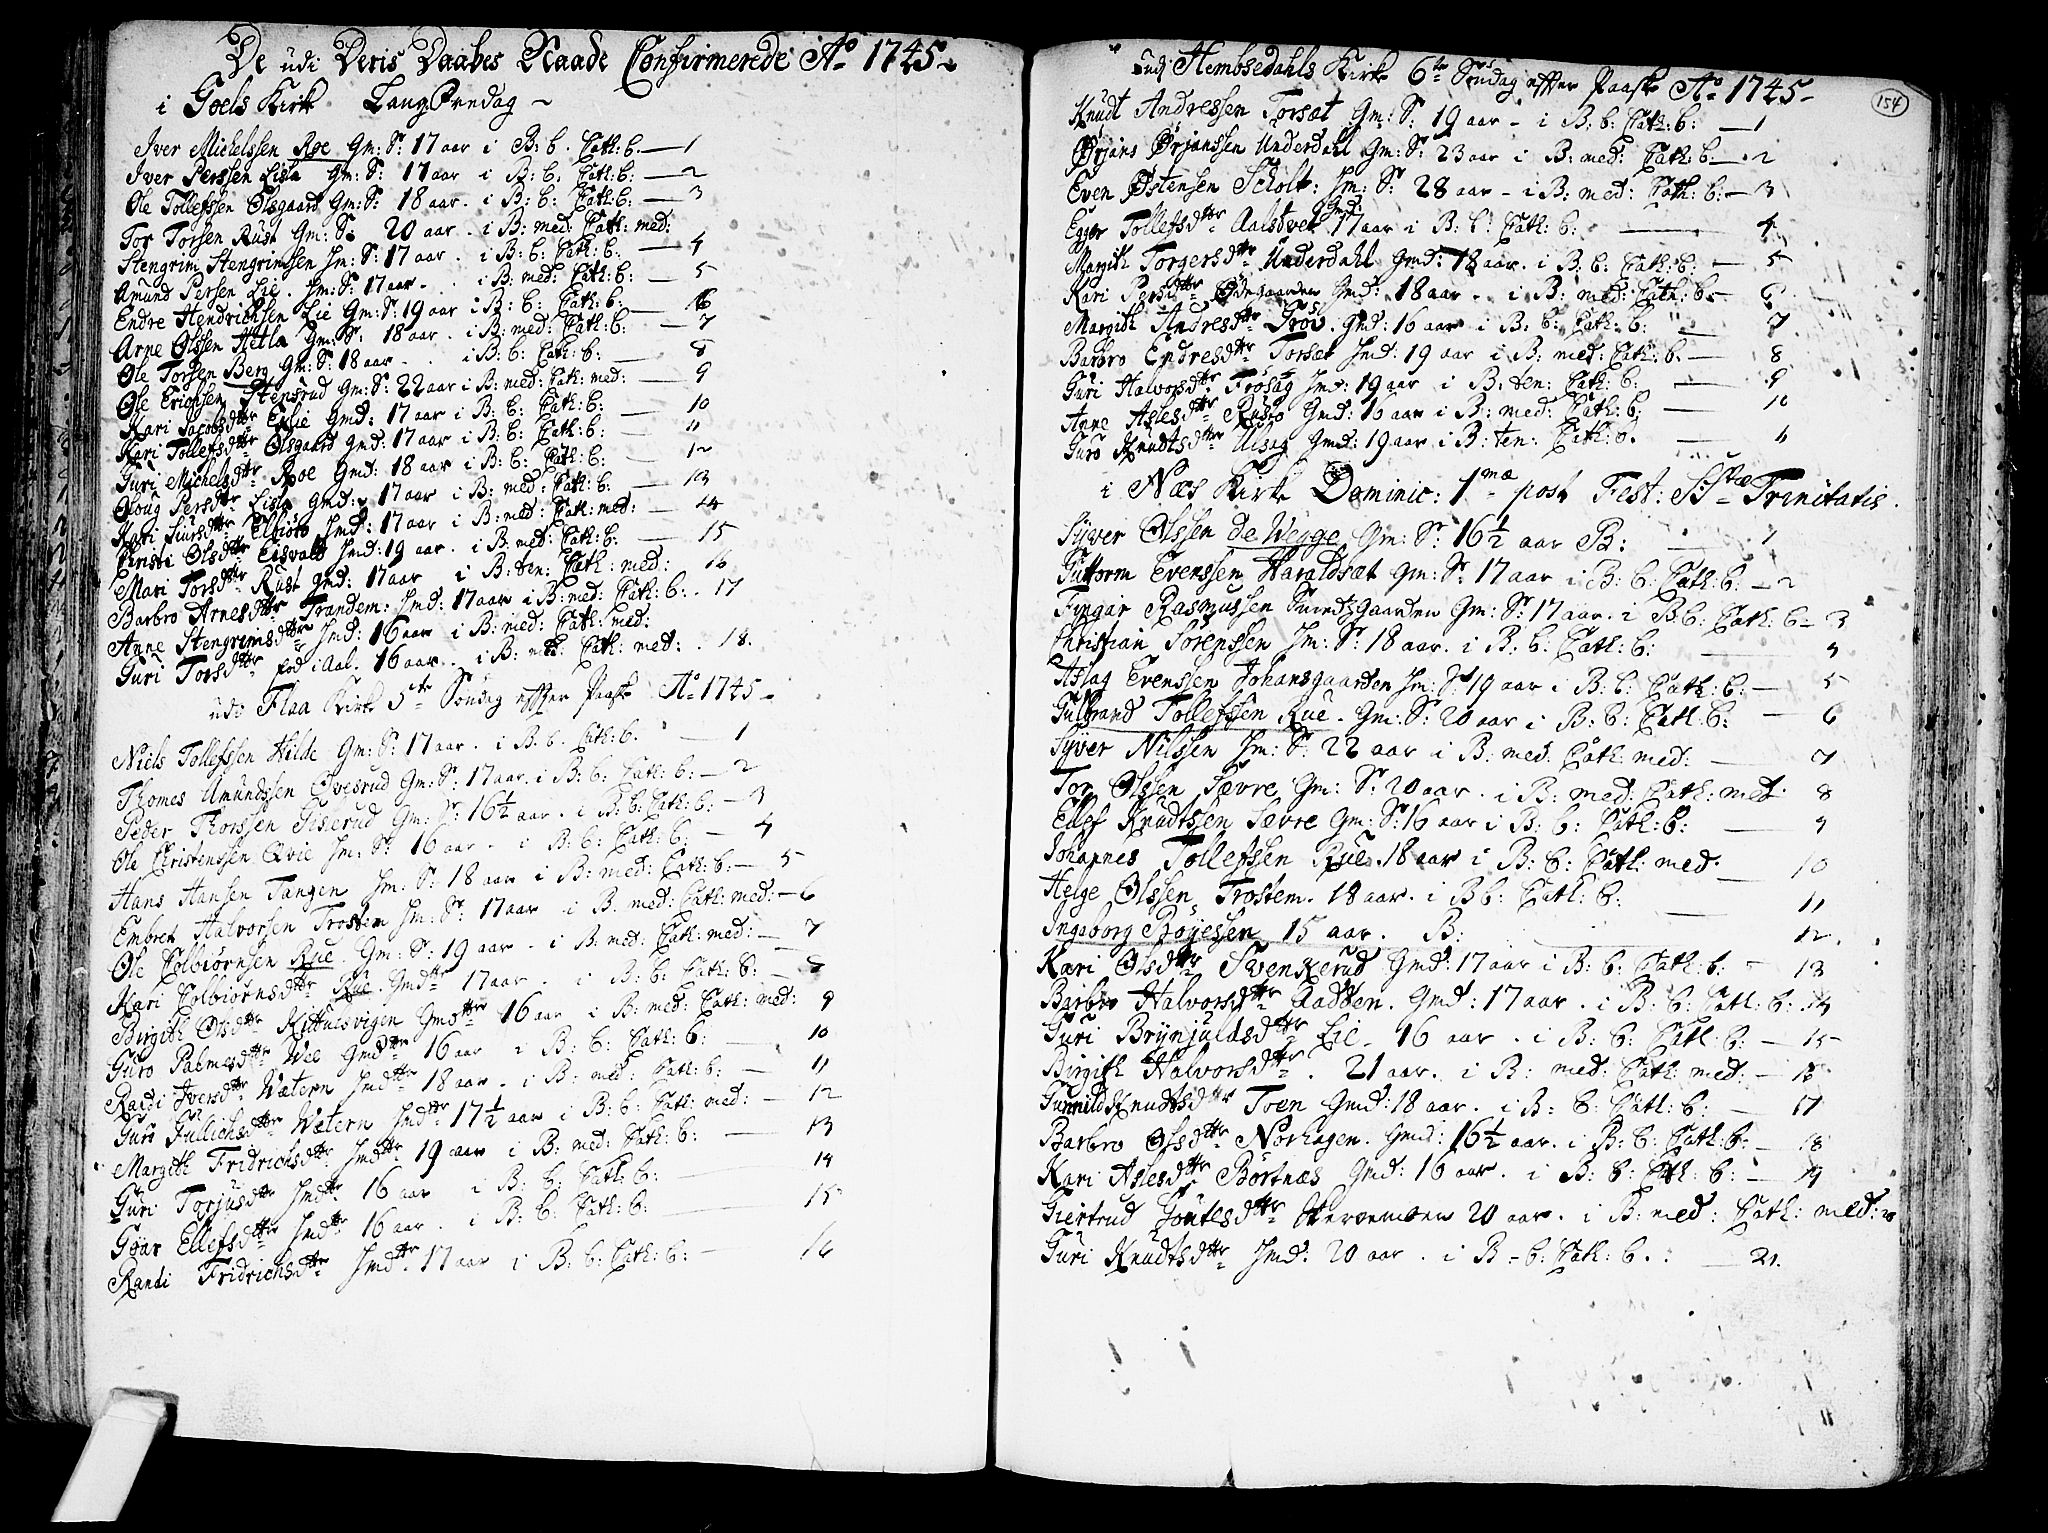 De udi Deris Daabes Naade Confirmerede Ao 1745
i Goels Kirke Lang Fredag
Iver Michelssen Roe Gm: S: 17 aar i B: b. Cath: b. 1
Iver Perssen Lisla Gm: S: 17 aar i B: b: Cath: b: 2
Ole Tollefssen Olsgaard Gm: S: 18 aar. i B: b: Cath: b: 3
Tor Torsen Rust Gm: S: 20 aar. i B: med: Cath: med:
Stengrim Stengrimssen Jm: S: 17 aar. i B: b: Cath: b. 4
Amund Persen Lie. Jm: S: 17 aar. i B: med: Cath: b: 5
Endre Hendrichsen Lie Gm: S: 19 aar i B: b: Cath: b: 6
Arne Olssen Hetla Gm: S: 18 aar. i B: med: Cath: b: 7
Ole Torsen Berg Gm: S: 18 aar i B: b: Cath: b: 8
Ole Erichsen Stensrud Gm: S: 22 aar i B: med: Cath: med: 9
Kari Jacobsdttr Eslie Gmd: 17 aar i B: b: Cath: b: 10
Kari Tollefsdttr Olsgaard Gmd: 17 aar i B: b: Cath: b: 11
Guri Michelsdttr Roe Gmd: 18 aar i B: b: Cath: b: 12
Oloug Persdttr Lisla Gmd: 17 aar i B: med: Cath: b: 13
Kari Siursdttr Elbioro Jmd: 17 aar i B: med: Cath: med: 14
Kirsti Olsdttr Eisvold Jmd: 19 aar. i B: med: Cath: b: 15
Mari Torsdttr Rust Gmd: 17 aar i B: ten: Cath: med: 16
Barbro Arnesdttr Trandem: Jmd: 17 aar i B: med: Cath: b: 17
Anne Stengrimsdttr Jmd: 16 aar i B: med: Cath: med:
Guri Torsdttr fød i Aal. 16 aar. i B: med: Cath: med: 18.
udi Flaa Kirke 5te Søndag effter Paaske Ao 1745
Niels Tollefssen Hilde Gm: S: 17 aar. i B. b. Cath: b. 1
Thomes Amundssen Øvesrud Gm: S: 17 aar. i B: b: Cath: b: 2
Peder Thorssen Siserud Gm: S: 16½ aar. i B: b: Cath: b: 3
Ole Christenssen Qvie Jm: S: 16 aar. i B: b: Cath: b: 4
Hans Hansen Tangen Jm: S: 18 aar i B: med: Cath: b: 5
Embret Halvorsen Trostem Jm: S: 17 aar i B. med: Cath: med: 6
Ole Colbiørnsen Rue. Gm: S: 19 aar. i B: med: Cath: med: 7
Kari Colbiørnsdttr Rue. Gmdttr 17 aar. i B: b: Cath: b: 8
Birgith Olsdttr Kittilsvigen Gmdttr 16 aar i B: med: Cath: med: 9
Guro Palmesdttr Wee Gmdttr 16 aar i B: b: Cath: b: 10
Randi Iversdttr Wætern Jmdttr 18 aar. i B: med: Cath: b: 11
Guro Fullichsdttr Wætern Jmdttr 17½ aar i B: b: Cath: med: 12
Margith Fridrichsdttr Jmdttr 19 aar i B: med: Cath: b: 13
Guri Torjusdttr Jmdttr 16 aar i B: b: Cath: b: 14
Goar Ellefsdttr Jmdttr 16 aar. i B: b: Cath: b: 15
Randi Fridrichsdttr Jmdttr 17 aar i B: b: Cath: b: 16
udj Hembsedahls Kirke 6te Søndag effter Paaske Ao 1745
154
Knudt Andressen Torsæt Gm: S: 19 aar i B: b: Cath: b: 1
Ørjans Ørjanssen Underdahl Gm: S: 23 aar i B: med: Cath: b: 2
Even Østensen Scholt: Jm: S: 28 aar i B: med: Cath: b: 3
Egger Tollefsdttr Aalstvet Gmd: 17 aar i B: b: Cath: b: 4
Margith Torgersdttr Underdahl Gmd: 18 aar. i B: b: Cath: b: 5
Kari Persdttr Ødegaarden Gmd: 18 aar. i B: med: Cath: b. 6
Margith Andresdttr Grøv. Gmd: 16 aar i B: b: Cath: b: 7
Barbro Endresdttr Torsæt Jmd: 19 aar i B: med: Cath: b. 8
Guri Halvorsdttr Frosag Jmd: 19 aar i B: ten: Cath: b: 9
Anne Aslesdttr Rusto Gmd: 16 aar i B: med: Cath: b: 10
Guro Knudtsdttr Ulsag Gmd: 19 aar i B: ten: Cath: b. 11
i Næs Kirke Dominic: 1mæ post Fest: S:Stæ Trinitatis.
Syver Olssen de Wegge Gm: S: 16½ aar B: 1
Guttorm Evenssen Haraldsæt Gm: S: 17 aar i B: b: Cath: b: 2
Fyngar Rasmussen Smedsgaarden Gm: S: 17 aar. i B: b: Cath: b 3
Christian Sørenssen Jm: S: 18 aar. i B: b: Cath: b: 4
Aslag Evenssen Johansgaarden Jm: S: 19 aar i B: b: Cath: b: 5
Gulbrand Tollefssen Rue. Gm: S: 20 aar i B: b: Cath: b: 6
Syver Nilssen Jm: S: 22 aar i B: med. Cath: med: 7
Tor Olssen Sævre Gm: S: 20 aar. i B: med: Cath: med. 8
Ellef Knudtssen Sævre Gm: S: 16 aar i B: b: Cath: b: 9
Johannes Tollefssen Rue. 18 aar i B: b: Cath: med. 10
Helge Olssen Trostem. 18 aar. i B b: Cath: b: 11
Ingeborg Røyessen 15 aar. B: 12.
Kari Olsdttr Svenkerud Gmd: 17 aar i B: b: Cath: b: 13
Barbro Halvorsdttr Aadden. Gmd: 17 aar. i B: b: Cath: b: 14
Guri Brynjulsdttr Lie. 16 aar. i B: b: Cath: b: 15
Birgith Halvorsdttr. 21 aar. i B: med: Cath: med: 16
Gunnild Knudtsdttr Toen Gmd: 18 aar. i B: b: Cath: b: 17
Barbro Olsdttr Norhagen. Gmd: 16½ aar. i B: b: Cath: b: 18
Kari Aslesdttr Børtnæs Gmd: 16 aar. i B: b: Cath: b: 19
Giertrud Goutesdttr 20 aar. i B: med: Cath: med: 20
Guri Knudtsdttr Jmd: 20 aar. i B: b: Cath: b. 21.